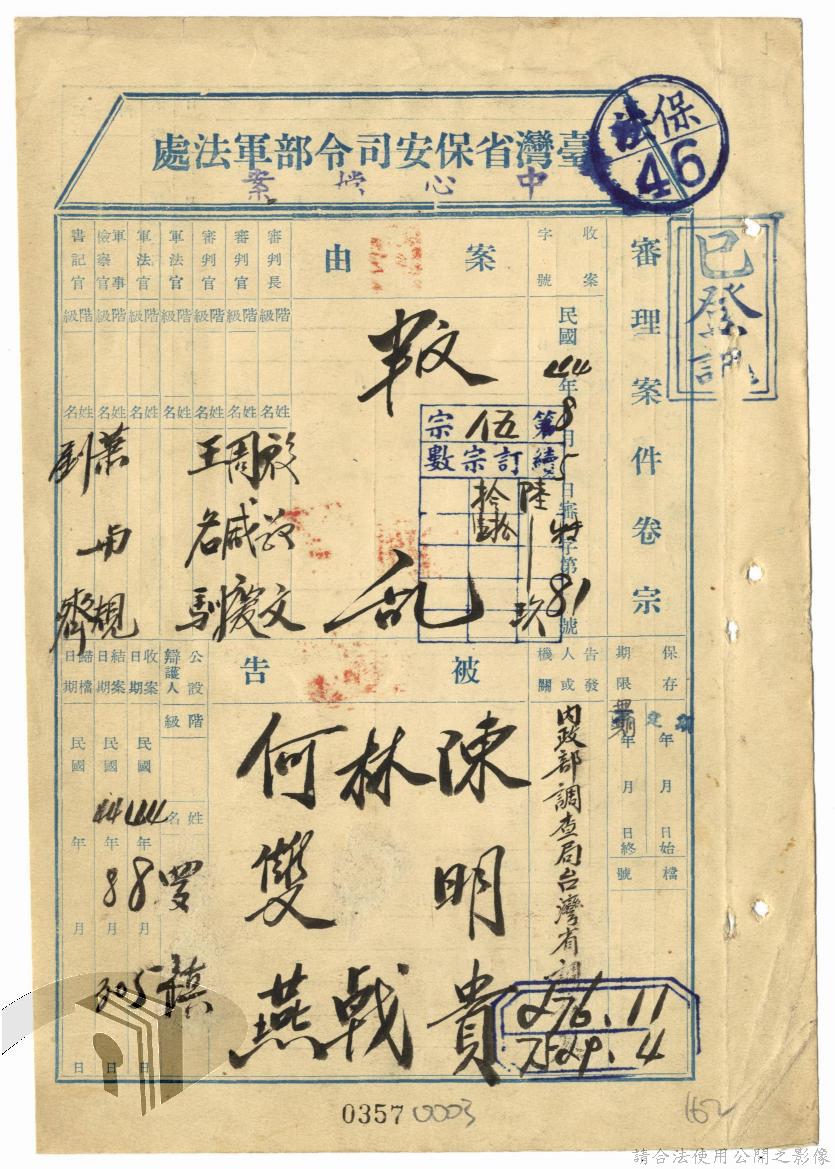 保
法
46
臺灣省保安司令部軍法處
中心檔案
已登記
審理案件卷宗
保存
期限
年 月 日始
年 月 日終
檔號
收案
字號
民國44年8月5日
字第81號
第伍宗
續訂宗數
陸
玖
拾
告發
人或
機關
內政部調查局台灣省
案由
叛乱
被告
陳明貴
林戟
何雙燕
審判長
階級
姓名
殷敬文
審判官
階級
姓名
周咸慶
審判官
階級
姓名
王名馴
軍法官
階級
姓名
軍法官
階級
姓名
軍事
檢察官
階級
姓名
葉
規
書記官
階級
姓名
劉
齊
公設
辯護人
階級
姓名
收案
日期
民國44年8月5日
結案
日期
民國44年8月30日
歸檔
日期
民國 年 月 日
276.11
7529.4
0357 0003
162
請合法使用公開之影像